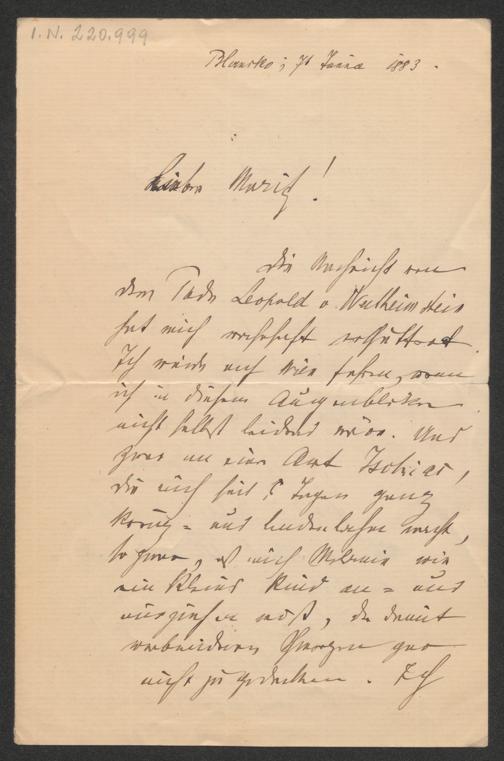 I.N. 220.999
Blansko, 7t Januar 1883.
Lieber Moriz!
Die Nachricht von
dem Tode Leopold v Wertheimstein
hat mich wahrhaft erschüttert.
Ich würde nach Wien fahren, wenn
ich in diesem Augenblicke
nicht selbst leidend wäre. Und
zwar an einer Art Ischias,
die mich seit 8 Tagen ganz
kreuz- und lendenlahm macht,
so zwar, daß mich Melanie wie
ein kleines Kind an- und
ausziehen muß, der damit
verbundenen Schmerzen gar
nicht zu gedenken. Ich